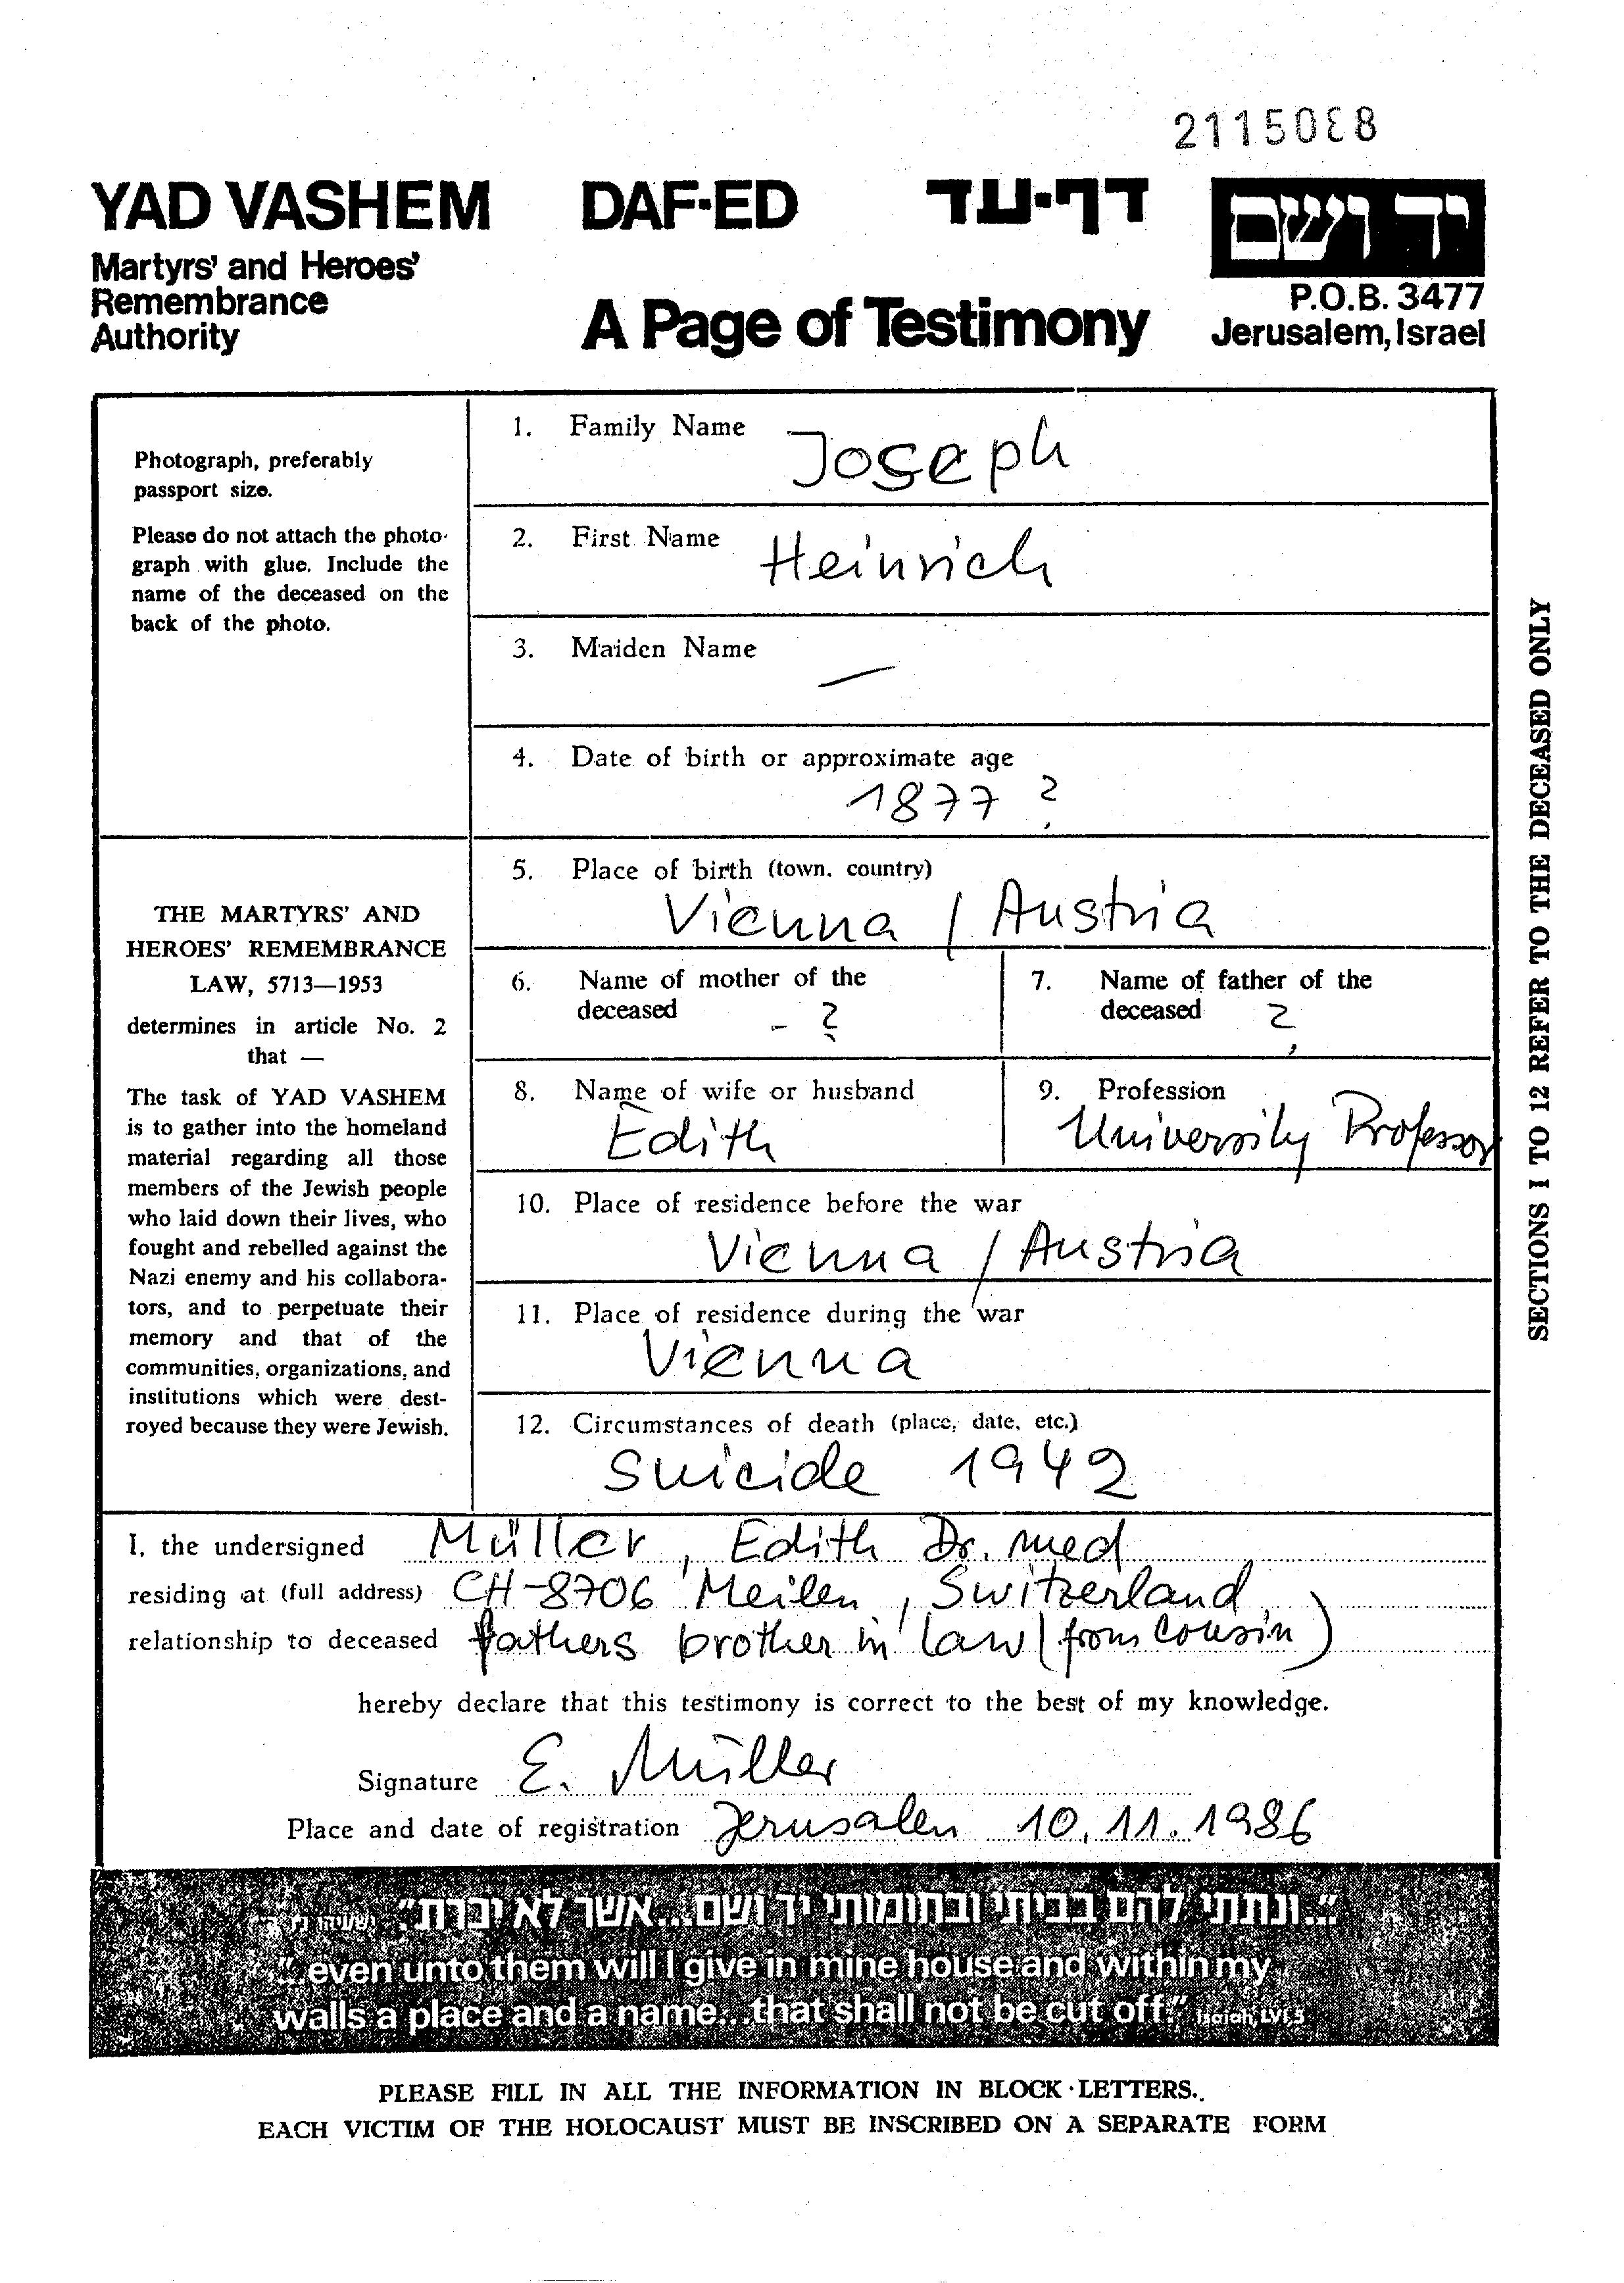 2115088
YAD VASHEM DAF-ED דף-עד ידושם
Martyrs' and Heroes'
Remembrance
Authority
A Page of Testimony
P.O.B. 3477
Jerusalem, Israel
Photograph, preferably
passport size.
Please do not attach the photo-
graph with glue. Include the
name of the deceased on the
back of the photo.
THE MARTYRS' AND
HEROES' REMEMBRANCE
LAW, 5713—1953
determines in article No. 2
that —
The task of YAD VASHEM
is to gather into the homeland
material regarding all those
members of the Jewish people
who laid down their lives, who
fought and rebelled against the
Nazi enemy and his collabora-
tors, and to perpetuate their
memory and that of the
communities, organizations, and
institutions which were dest-
royed because they were Jewish.
1. Family Name Joseph
2. First Name Heinrich
3. Maiden Name —
4. Date of birth or approximate age
1877 ?
5. Place of birth (town, country)
Vienna / Austria
6. Name of mother of the
deceased - ?
7. Name of father of the
deceased ?
8. Name of wife or husband
Edith
9. Profession
University Professor
10. Place of residence before the war
Vienna / Austria
11. Place of residence during the war
Vienna
12. Circumstances of death (place, date, etc.)
Suicide 1942
SECTIONS 1 TO 12 REFER TO THE DECEASED ONLY
I, the undersigned Müller, Edith Dr. med
residing at (full address) CH-8706 Meilen, Switzerland
relationship to deceased fathers brother in law (from cousin)
hereby declare that this testimony is correct to the best of my knowledge.
Signature E. Müller
Place and date of registration Jerusalem 10.11.1986
"...ונתתי להם בביתי ובחומותי יד ושם...אשר לא יכרת"
"...even unto them will I give in mine house and within my
walls a place and a name...that shall not be cut off." Isaiah, LVI,5
PLEASE FILL IN ALL THE INFORMATION IN BLOCK LETTERS.
EACH VICTIM OF THE HOLOCAUST MUST BE INSCRIBED ON A SEPARATE FORM